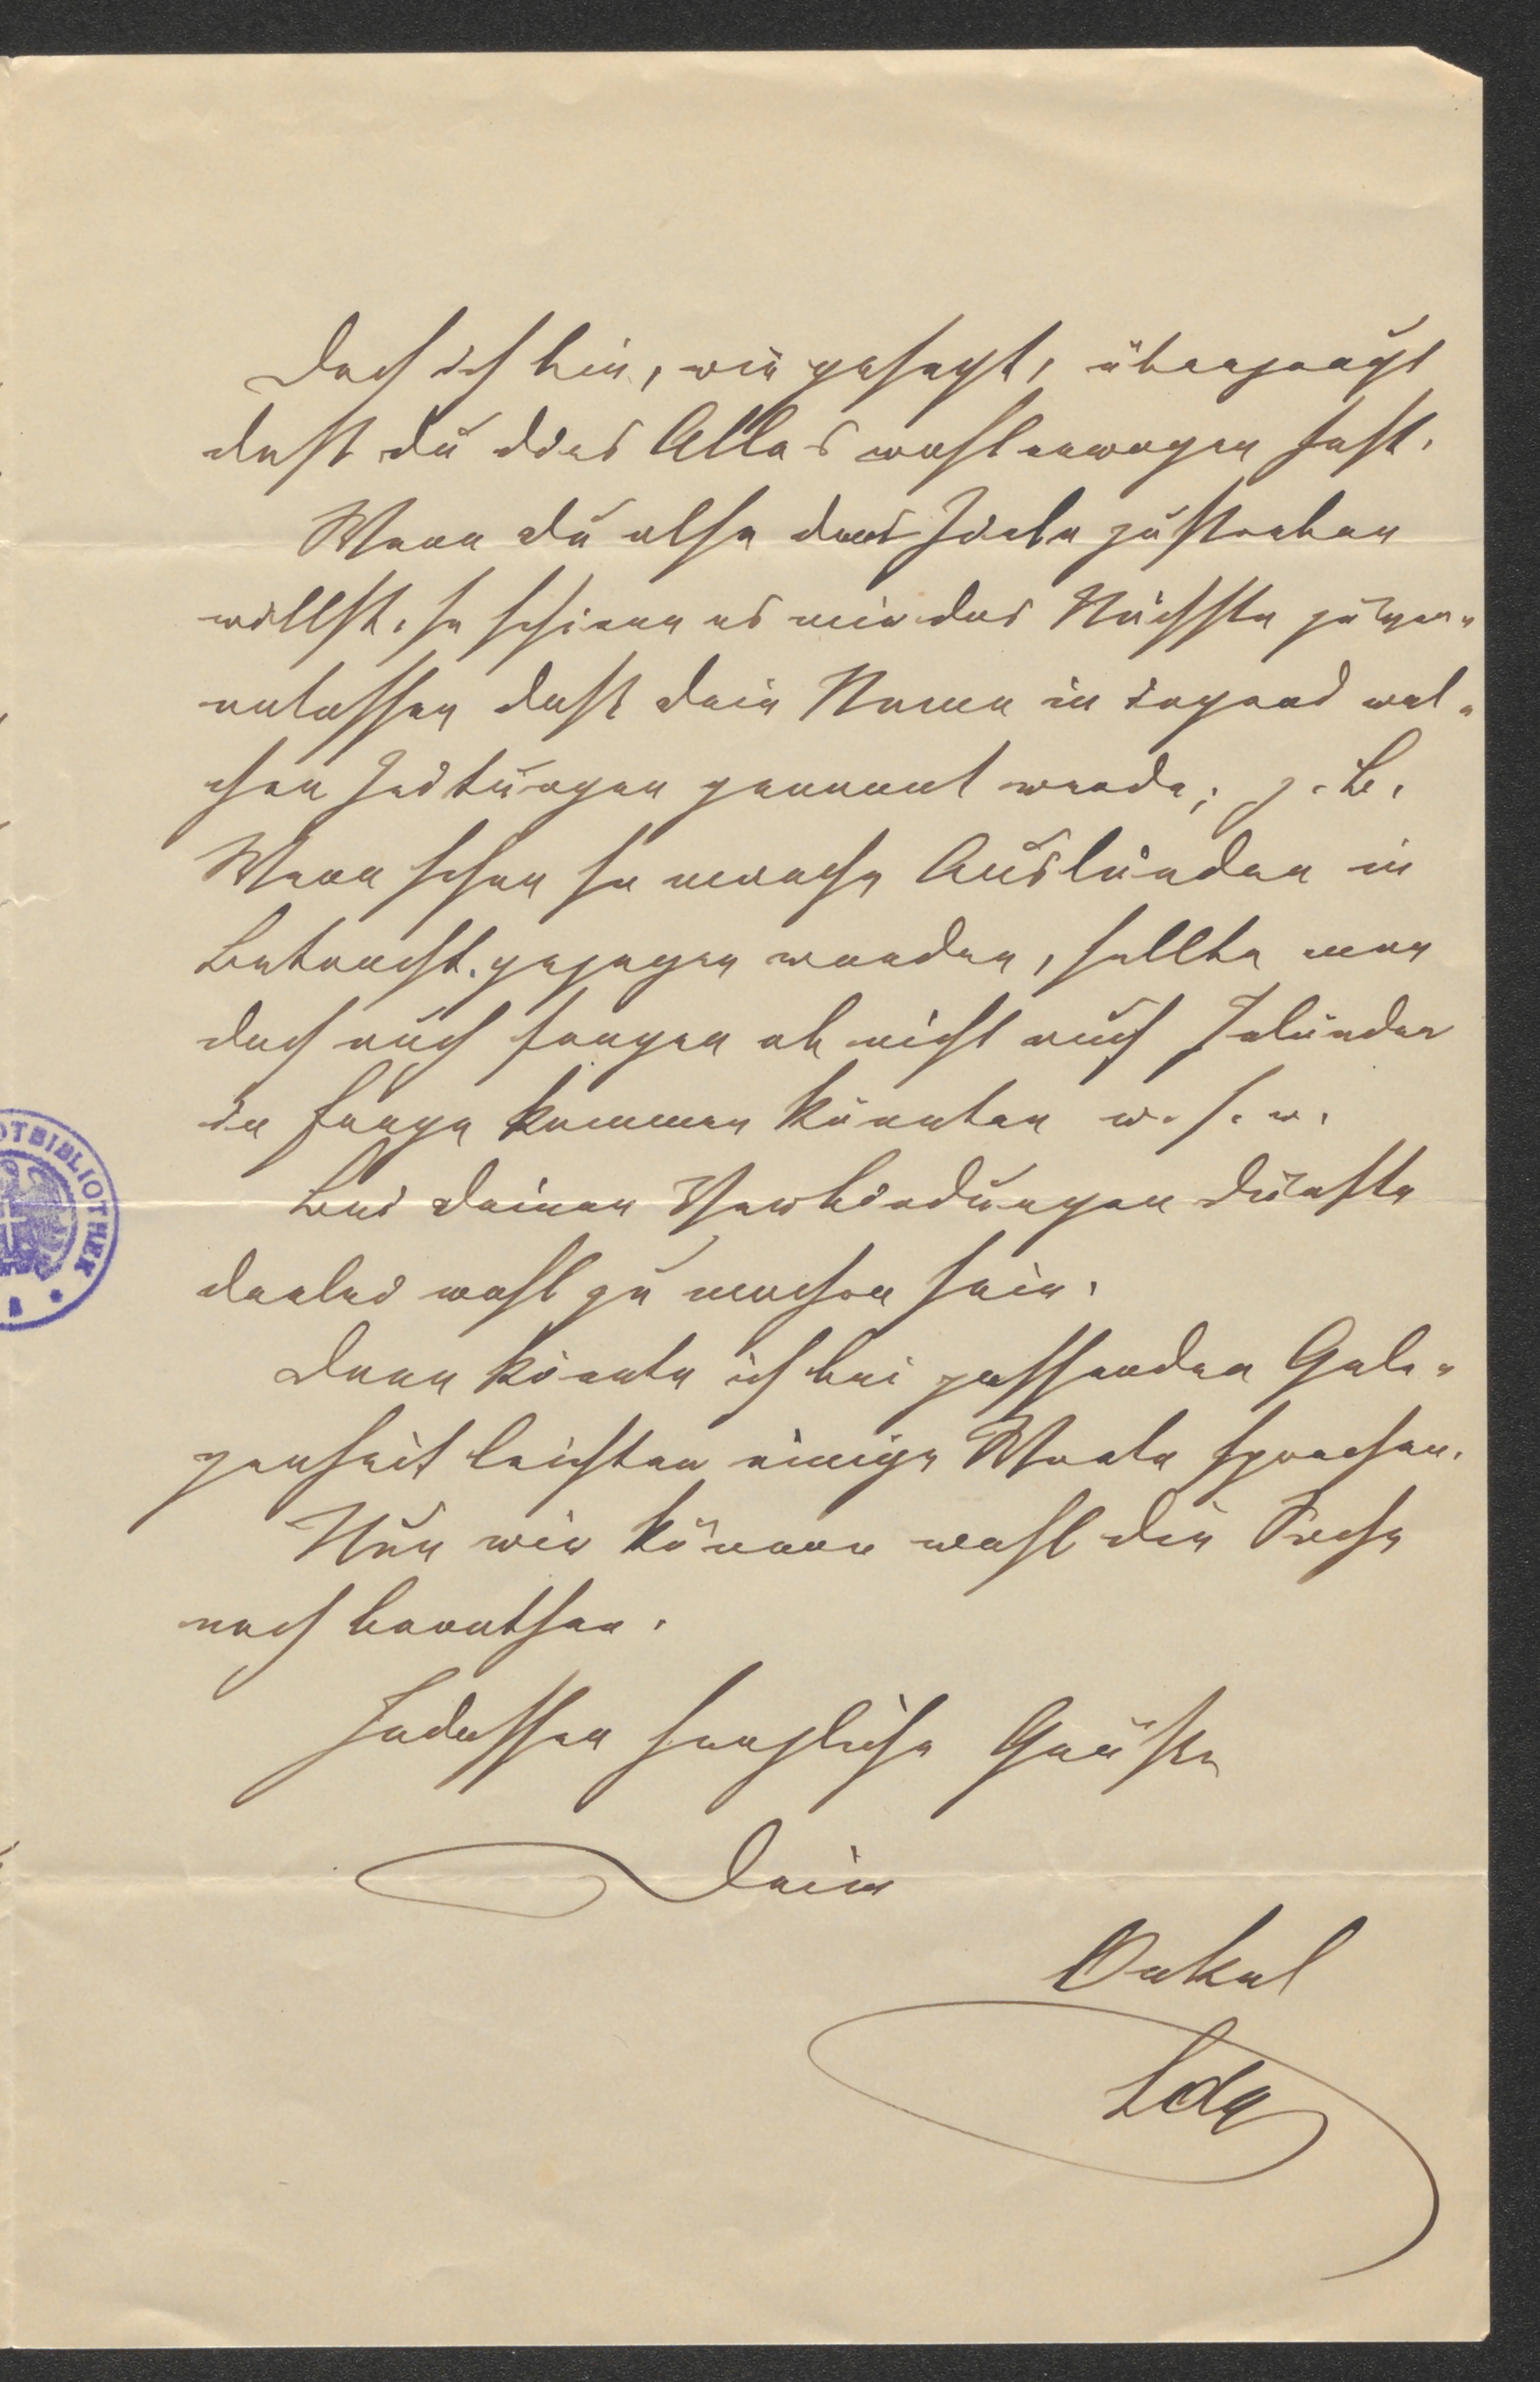 Doch ich bin, wie gesagt, überzeugt
daß du dies Alles wohl erwogen hast.
Wenn du also dem Ziele zustreben
willst, so schiene es mir das Nächste zu ver-
anlassen daß dein Name in irgend wel-
chen Zeitungen genannt werde; z. B.
Wenn schon so manche Ausländer in
Betracht gezogen werden, sollte man
doch auch fragen ob nicht auch Inländer
in Frage kommen könnten u. s. w.
Bei deinen Verbindungen dürfte
derlei wohl zu machen sein.
Dann könnte ich bei passender Gele-
genheit leichter einige Worte sprechen.
Nun wir können wohl die Sache
noch berathen.
Indessen herzliche Grüße
Dein
Onkel
OTBIBLIOTHEK